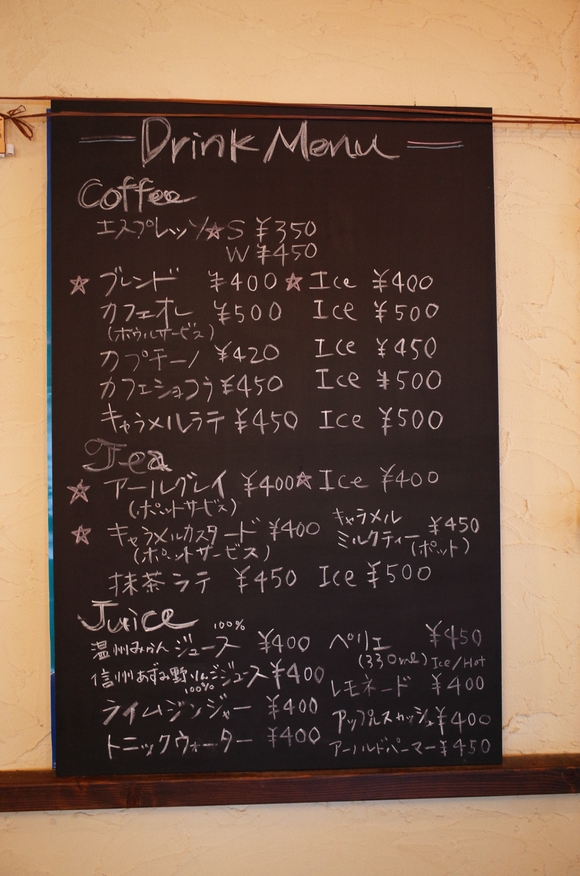 Drink Menu
Coffee
エスプレッソ☆S ¥350
W ¥450
☆ブレンド ¥400 ☆Ice ¥400
カフェオレ ¥500 Ice ¥500
(ボウルサービス)
カプチーノ ¥420 Ice ¥450
カフェショコラ ¥450 Ice ¥500
キャラメルラテ ¥450 Ice ¥500
Tea
☆アールグレイ ¥400 ☆Ice ¥400
(ポットサービス)
☆キャラメルカスタード ¥400
(ポットサービス)
キャラメル
ミルクティー ¥450
(ポット)
抹茶ラテ ¥450 Ice ¥500
Juice
100%
温州みかんジュース ¥400
信州あずみ野りんごジュース ¥400
100%
ライムジンジャー ¥400
トニックウォーター ¥400
ペリエ ¥450
(330ml) Ice/Hot
レモネード ¥400
アップルスカッシュ ¥400
アーノルドパーマー ¥450